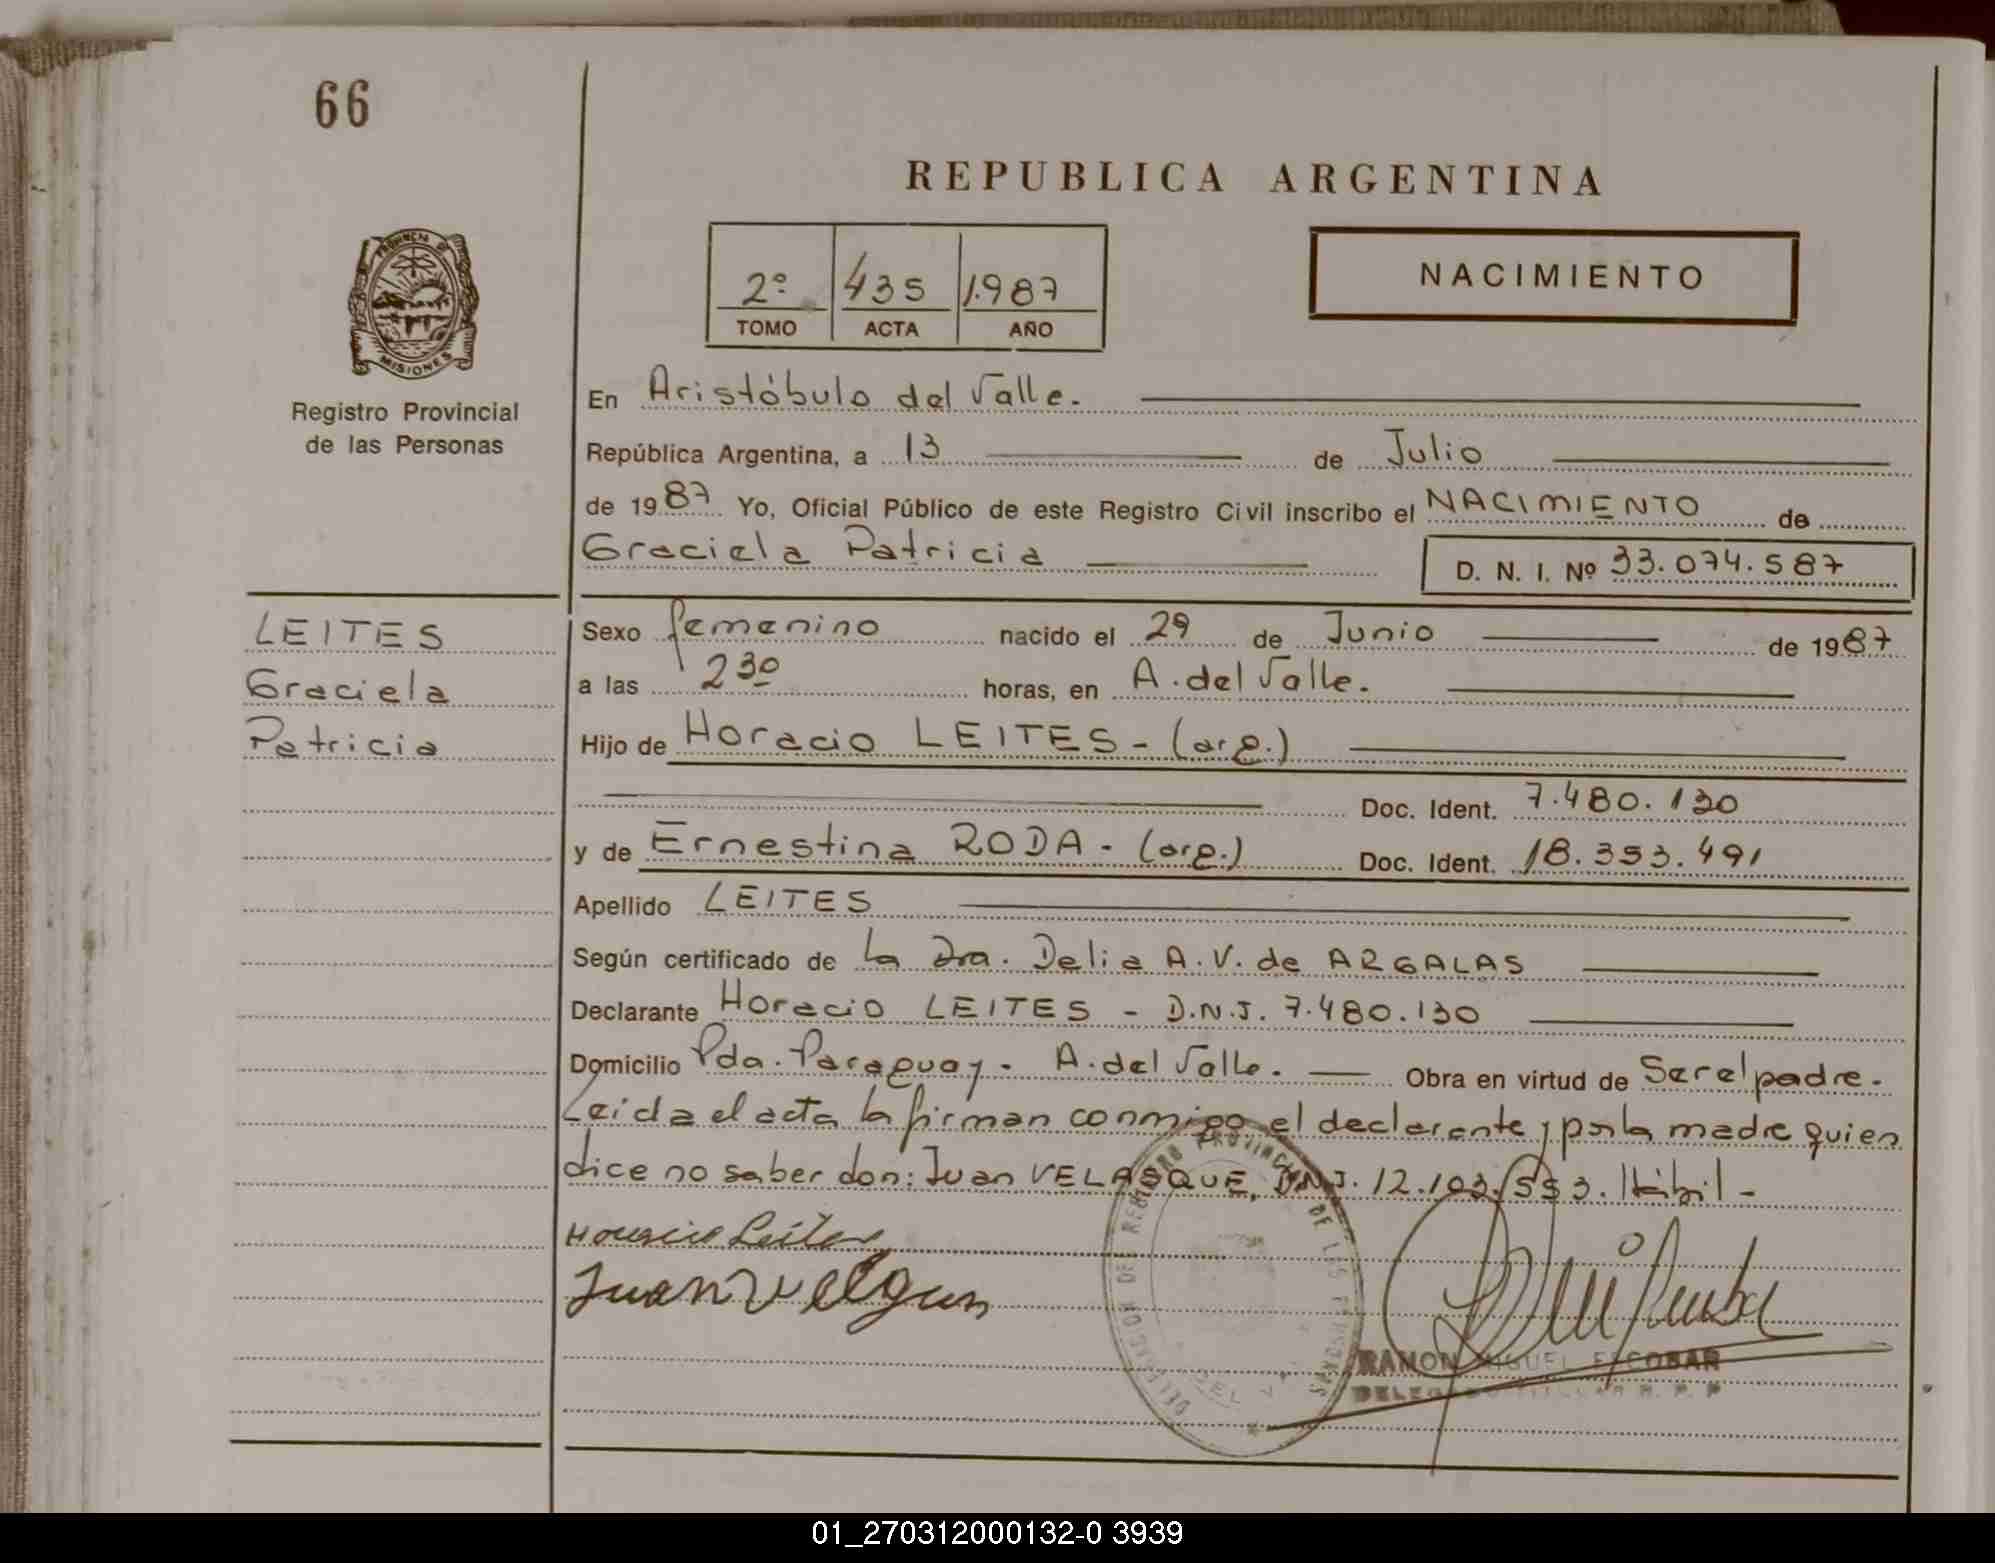 66
REPUBLICA ARGENTINA
PROVINCIA DE
MISIONES
Registro Provincial
de las Personas
2º 435 1.987
TOMO ACTA AÑO
NACIMIENTO
En Aristóbulo del Valle.
República Argentina, a 13 de Julio
de 1987 Yo, Oficial Público de este Registro Civil inscribo el NACIMIENTO de
Graciela Patricia D. N. I. Nº 33.074.587
LEITES
Graciela
Patricia
Sexo femenino nacido el 29 de Junio de 1987
a las 2 30 horas, en A. del Valle.
Hijo de Horacio LEITES - (arg.)
Doc. Ident. 7.480.130
y de Ernestina RODA - (arg.) Doc. Ident. 18.353.491
Apellido LEITES
Según certificado de la Dra. Delia A. V. de ARGALAS
Declarante Horacio LEITES - D.N.I. 7.480.130
Domicilio Pda. Paraguay - A. del Valle. Obra en virtud de Ser el padre.
Leida el acta la firman conmigo el declarante y por la madre quien
dice no saber don: Juan VELASQUE, D.N.I. 12.103.553. Hábil -
Horacio Leites
Juan
RAMON MIGUEL ESCOBAR
01_270312000132-0 3939